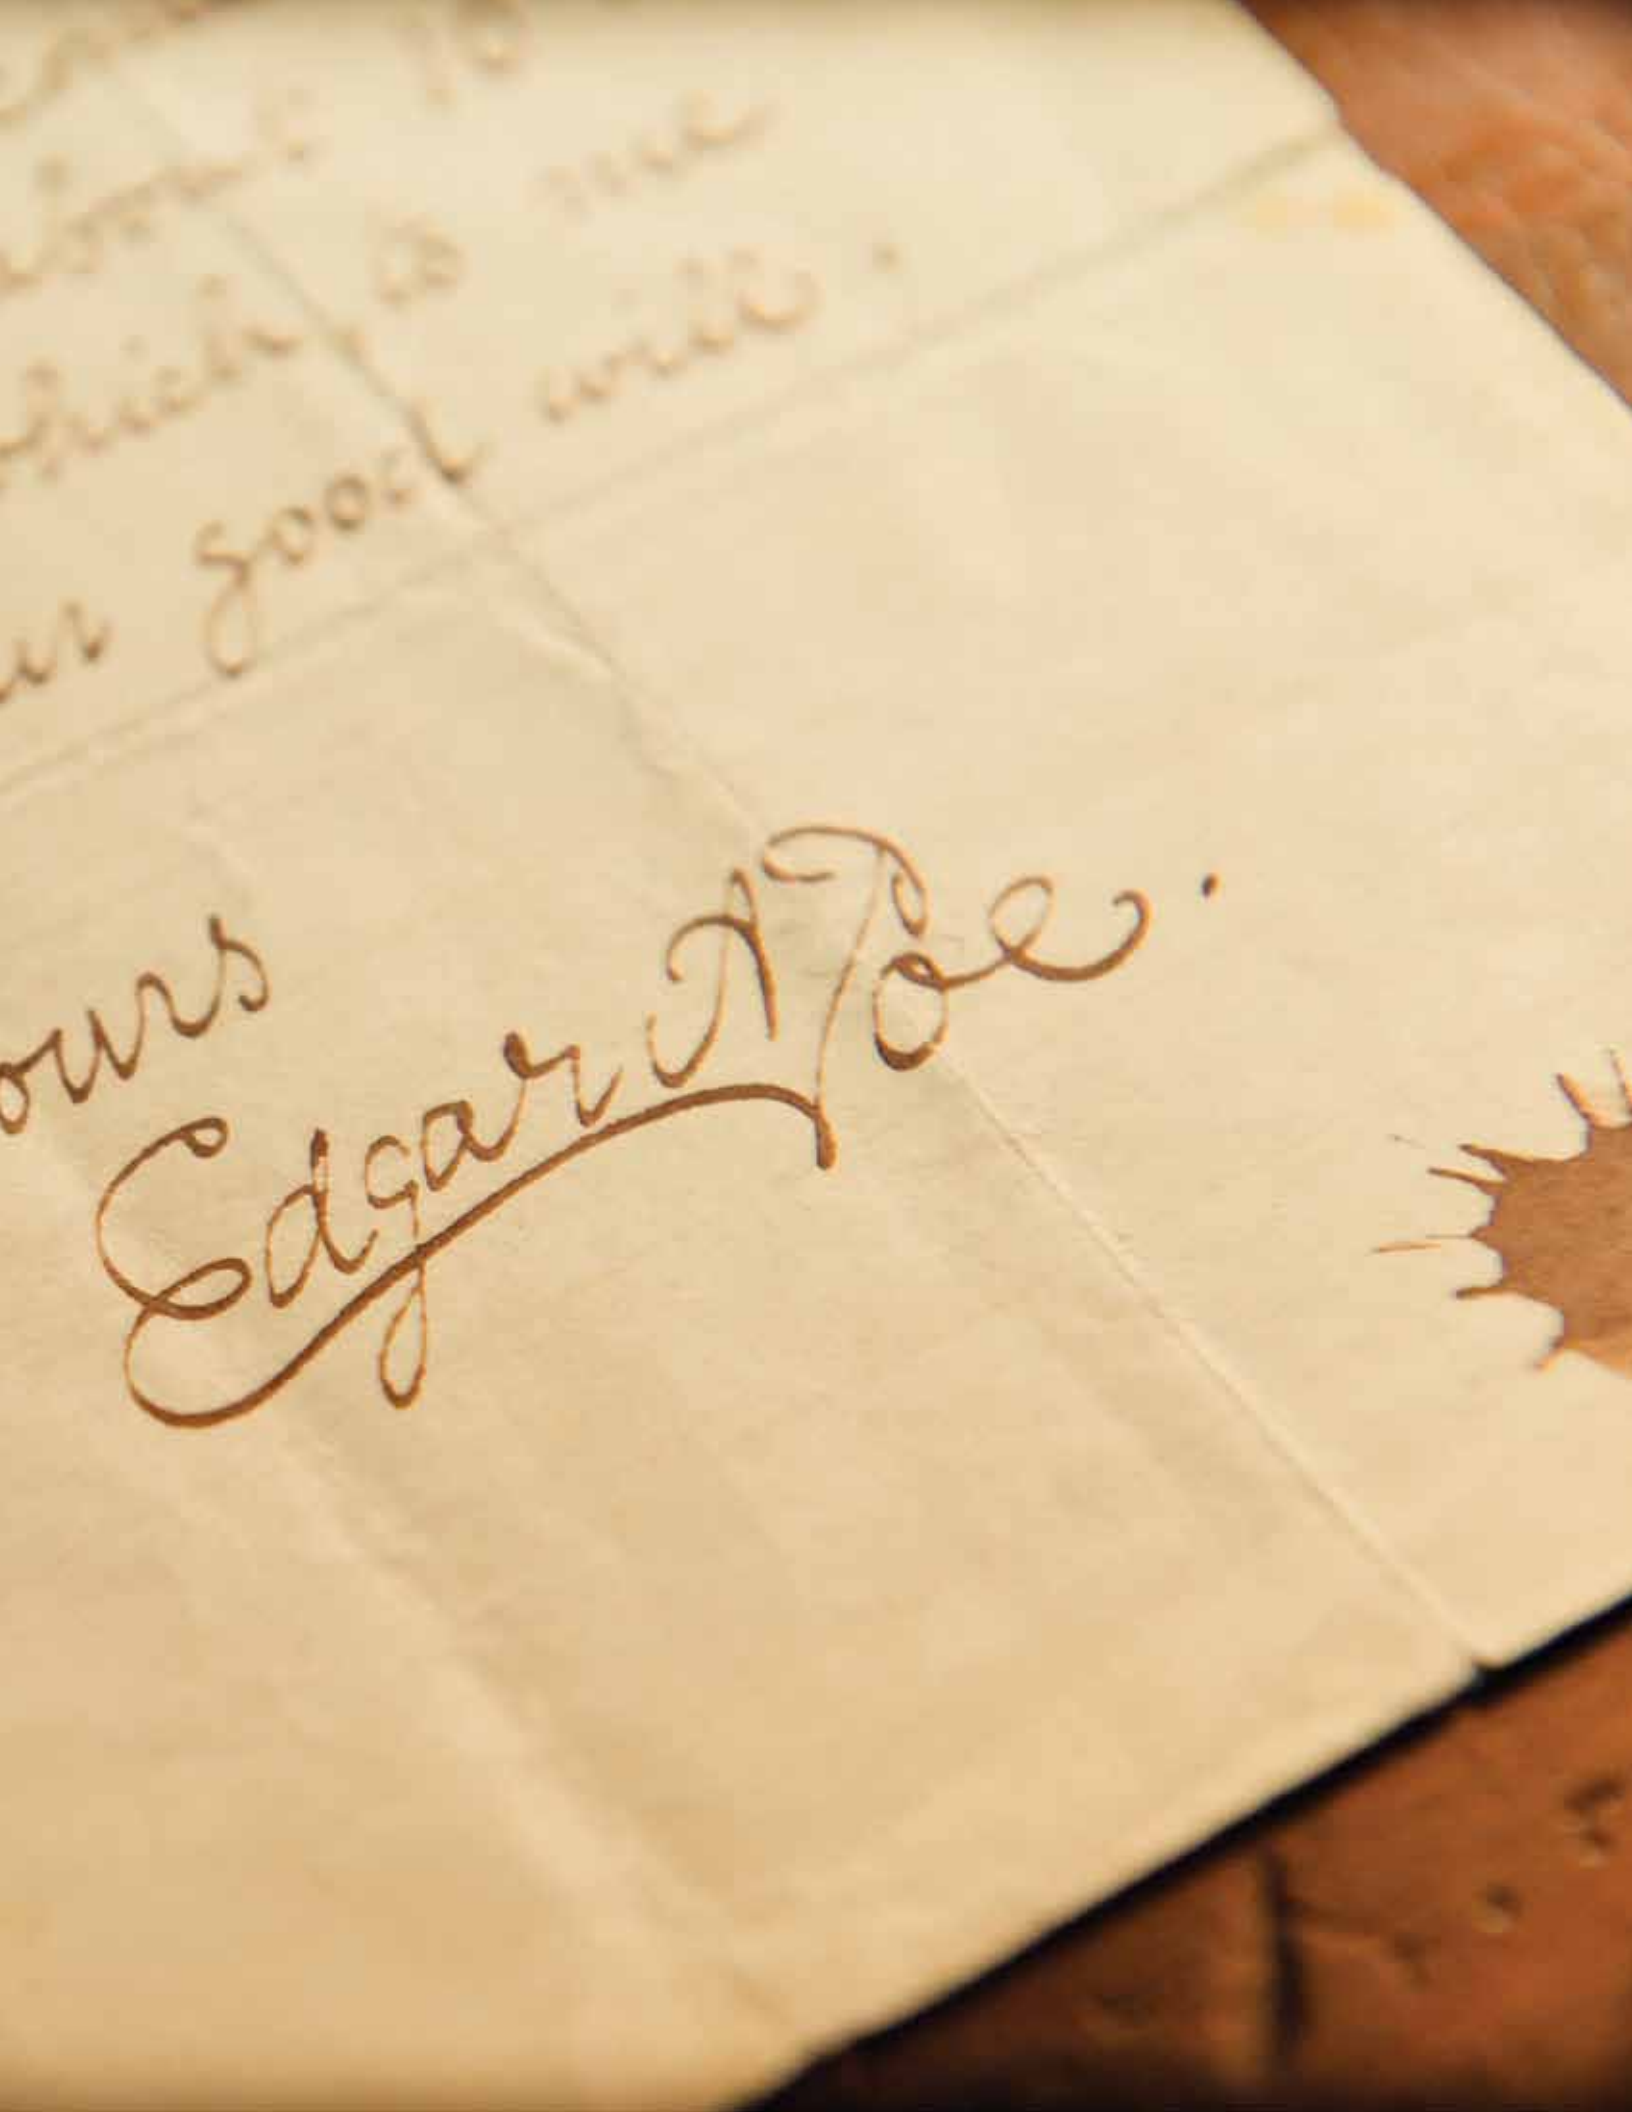 which is me
ur good will.
ours
Edgar A Poe.